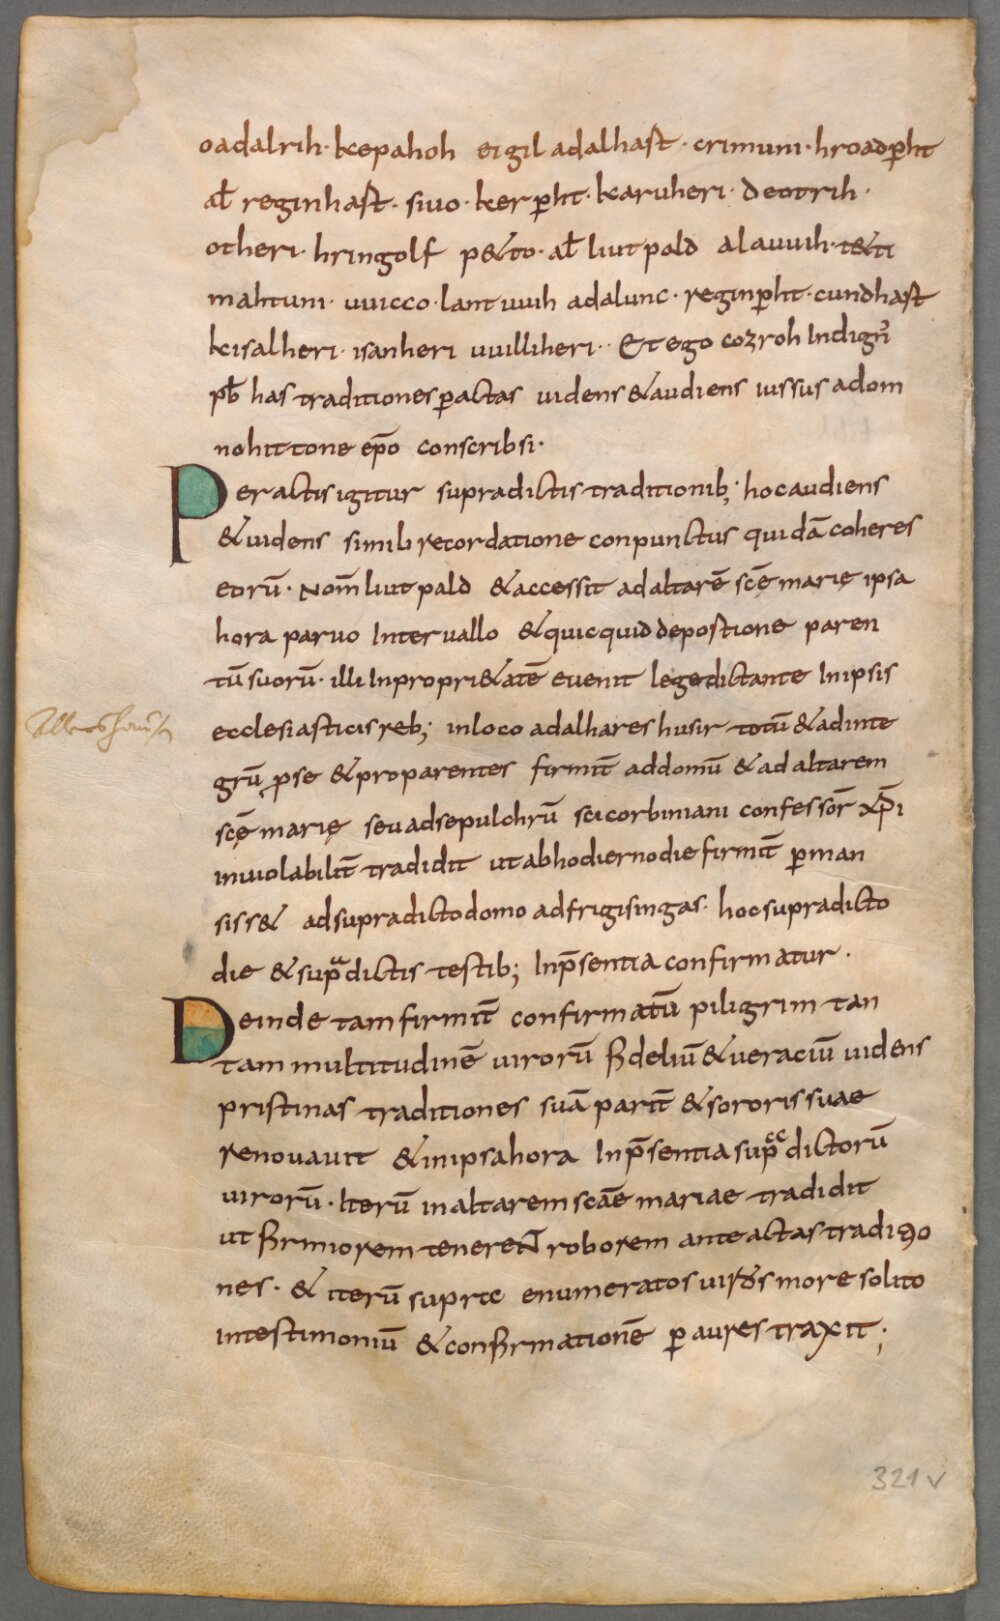 oadalrih· kepahoh eigil adalhast· crimuni· hroadp̱ht
al̄ reginhast· siuo· kerp̱ht· karuheri· deotrih·
otheri· hringolf p&to· al̄ liutpald alauuih· t&ti
mahtuni· uuicco· lantuuih adalunc· reginp̱ht· cundhast
kisalheri· isanheri uuilliheri·· Et ego cozroh Indign̄
pb̄ has traditiones p̱actas uidens &audiens iussus adom
no hittone ep̄o conscribsi·
Peractis igitur supradictis traditionib; hoc audiens
&uidens simili recordatione conpunctus quidā coheres
eorū· Nom̄ liutpald &accessit ad altarē scē marię ipsa
hora paruo Interuallo &quicquid depostione paren
tū suorū· illi Inpropri&atē euenit lege dictante Inipsis
ecclesiasticis reb; inloco adalhareshusir totū &adinte
grū p̱se &proparentes firmit̄ addomū &ad altarem
scę̄ marię seu adsepulchrū sci corbiniani confessor̄ xp̄i
inuiolabilit̄ tradidit ut abhodierno die firmit̄ p̱man
siss& adsupradicto domo adfrigisingas· hoc supradicto
die &sup̱ᵃdictis testib; Inp̄sentia confirmatur·
Deinde tam firmit̄ confirmatū piligrim tan
tam multitudinē uirorū fideliū &ueraciū uidens
pristinas traditiones suā parit̄ &sororis suae
renouauit &inipsa hora Inp̄sentia sup̱ᵃdictorū
uirorū· Iterū in altarem scāe mariae tradidit
ut firmiorem tenerent roborem anteactas traditio
nes· & iterū supra enumeratos uiros more solito
intestimoniū &confirmationē p̱ aures traxit;
321v